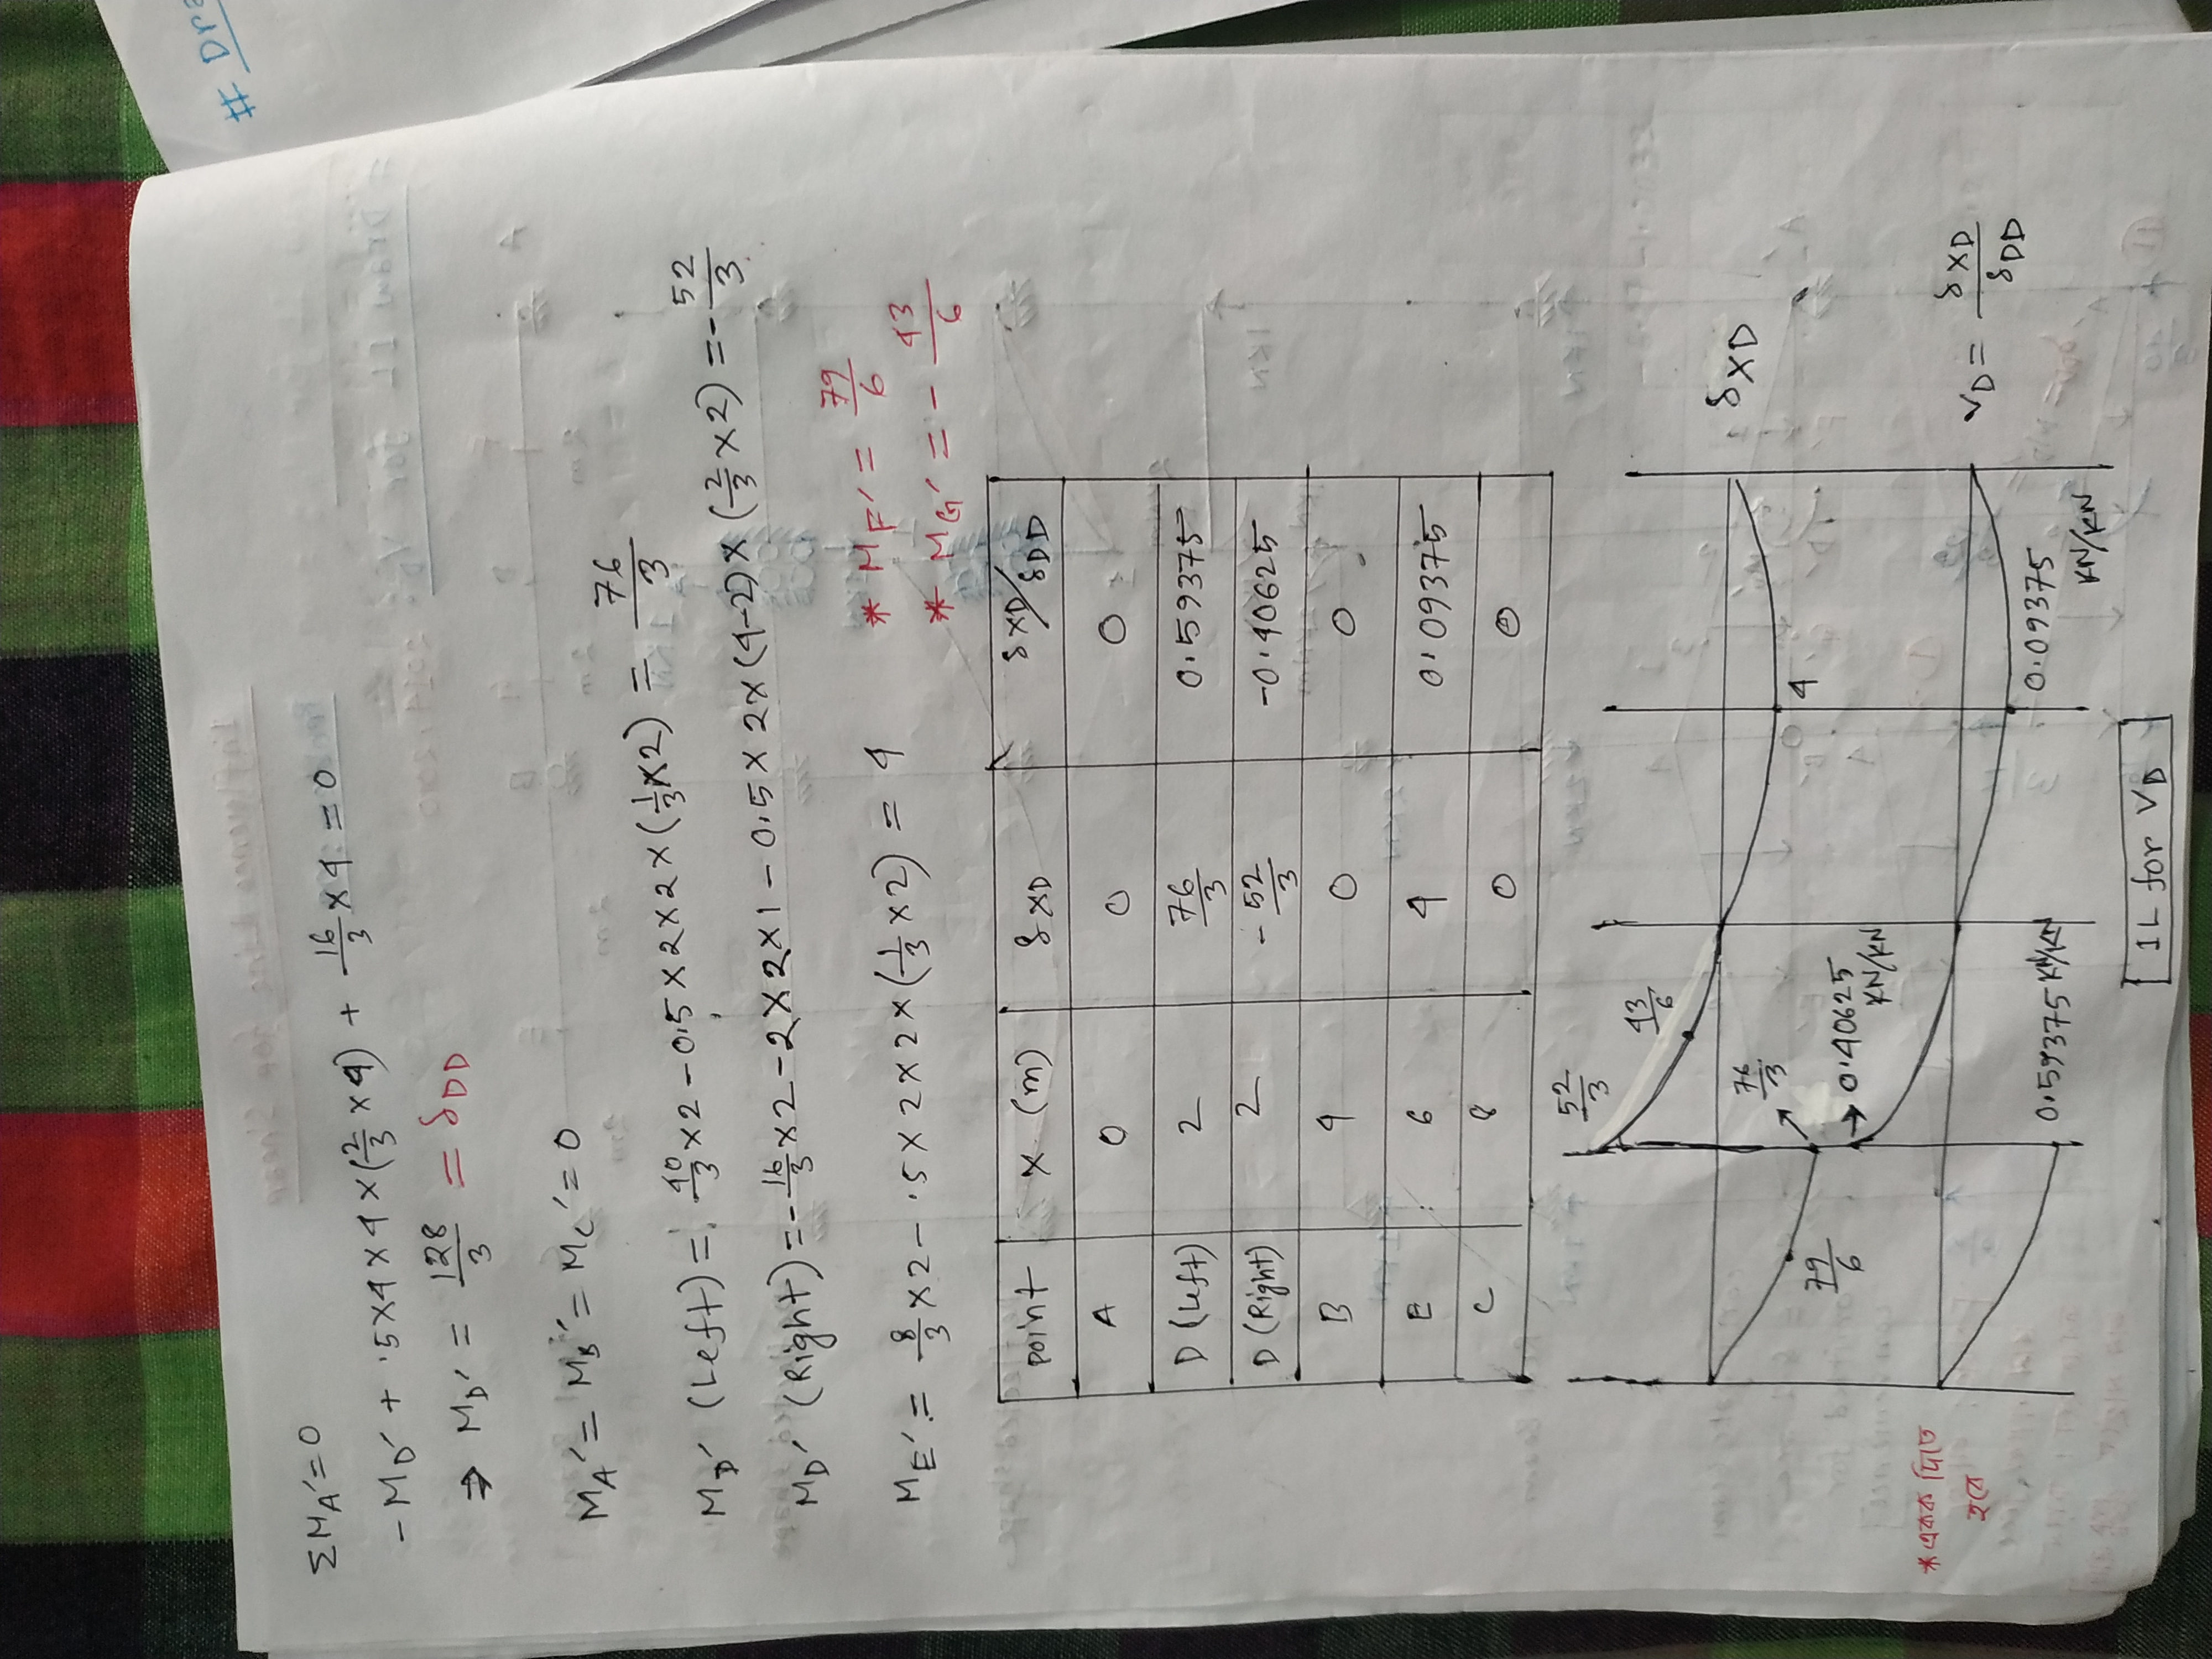 # Dra
ΣMA'=0
-MD' + .5×4×4×(2/3×4) + 16/3×4 = 0
→ MD' = 128/3 = δDD
MA' = MB' = MC' = 0
MD' (Left) = 40/3×2-0.5×2×2×(1/3×2) = 76/3
MD' (Right) = -16/3×2-2×2×1-0.5×2×(4-2)×(2/3×2) = -52/3
* MF' = 79/6
ME' = 8/3×2-.5×2×2×(1/3×2) = 4
* MG' = -43/6
point x (m) δXD δXD/δDD
A 0 0 0
D (Left) 2 76/3 0.59375
D (Right) 2 -52/3 -0.40625
B 4 0 0
E 6 4 0.09375
C 8 0 0
52/3
43/6
δXD
76/3
4
79/6
→ 0.40625 KN/KN
VD = δXD/δDD
0.09375 KN/KN
0.59375 KN/KN
* একক দিতে হবে
[IL for VD]